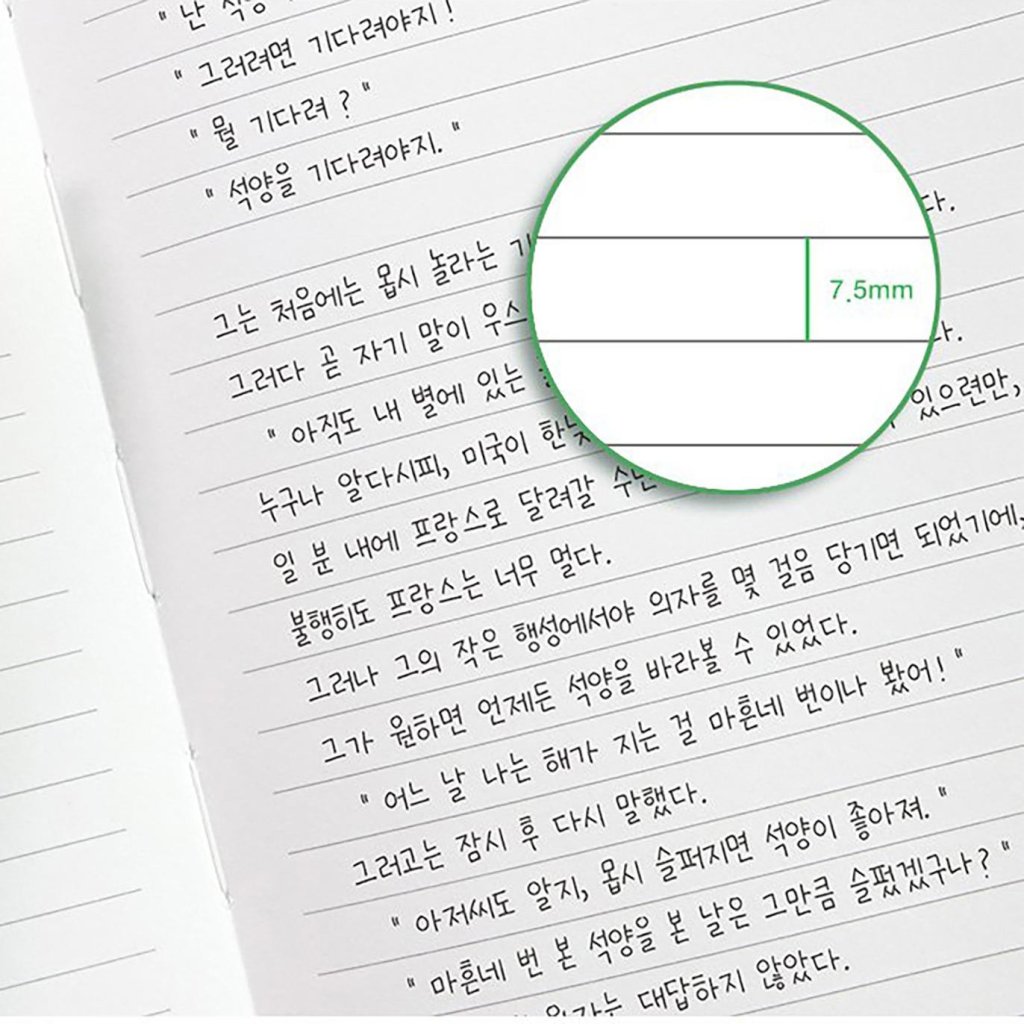 " 난
" 그러려면 기다려야지!
" 뭘 기다려? "
" 석양을 기다려야지. "
그는 처음에는 몹시 놀라는 다.
그러다 곧 자기 말이
7.5mm
" 아직도 내 별에 있는 다.
누구나 알다시피, 미국이 있으련만,
일 분 내에 프랑스로 달려갈
불행히도 프랑스는 너무 멀다.
그러나 그의 작은 행성에서야 의자를 몇 걸음 당기면 되었기에,
그가 원하면 언제든 석양을 바라볼 수 있었다.
" 어느 날 나는 해가 지는 걸 마흔네 번이나 봤어! "
그러고는 잠시 후 다시 말했다.
" 아저씨도 알지, 몹시 슬퍼지면 석양이 좋아져. "
" 마흔네 번 본 석양을 본 날은 그만큼 슬펐겠구나? "
대답하지 않았다.